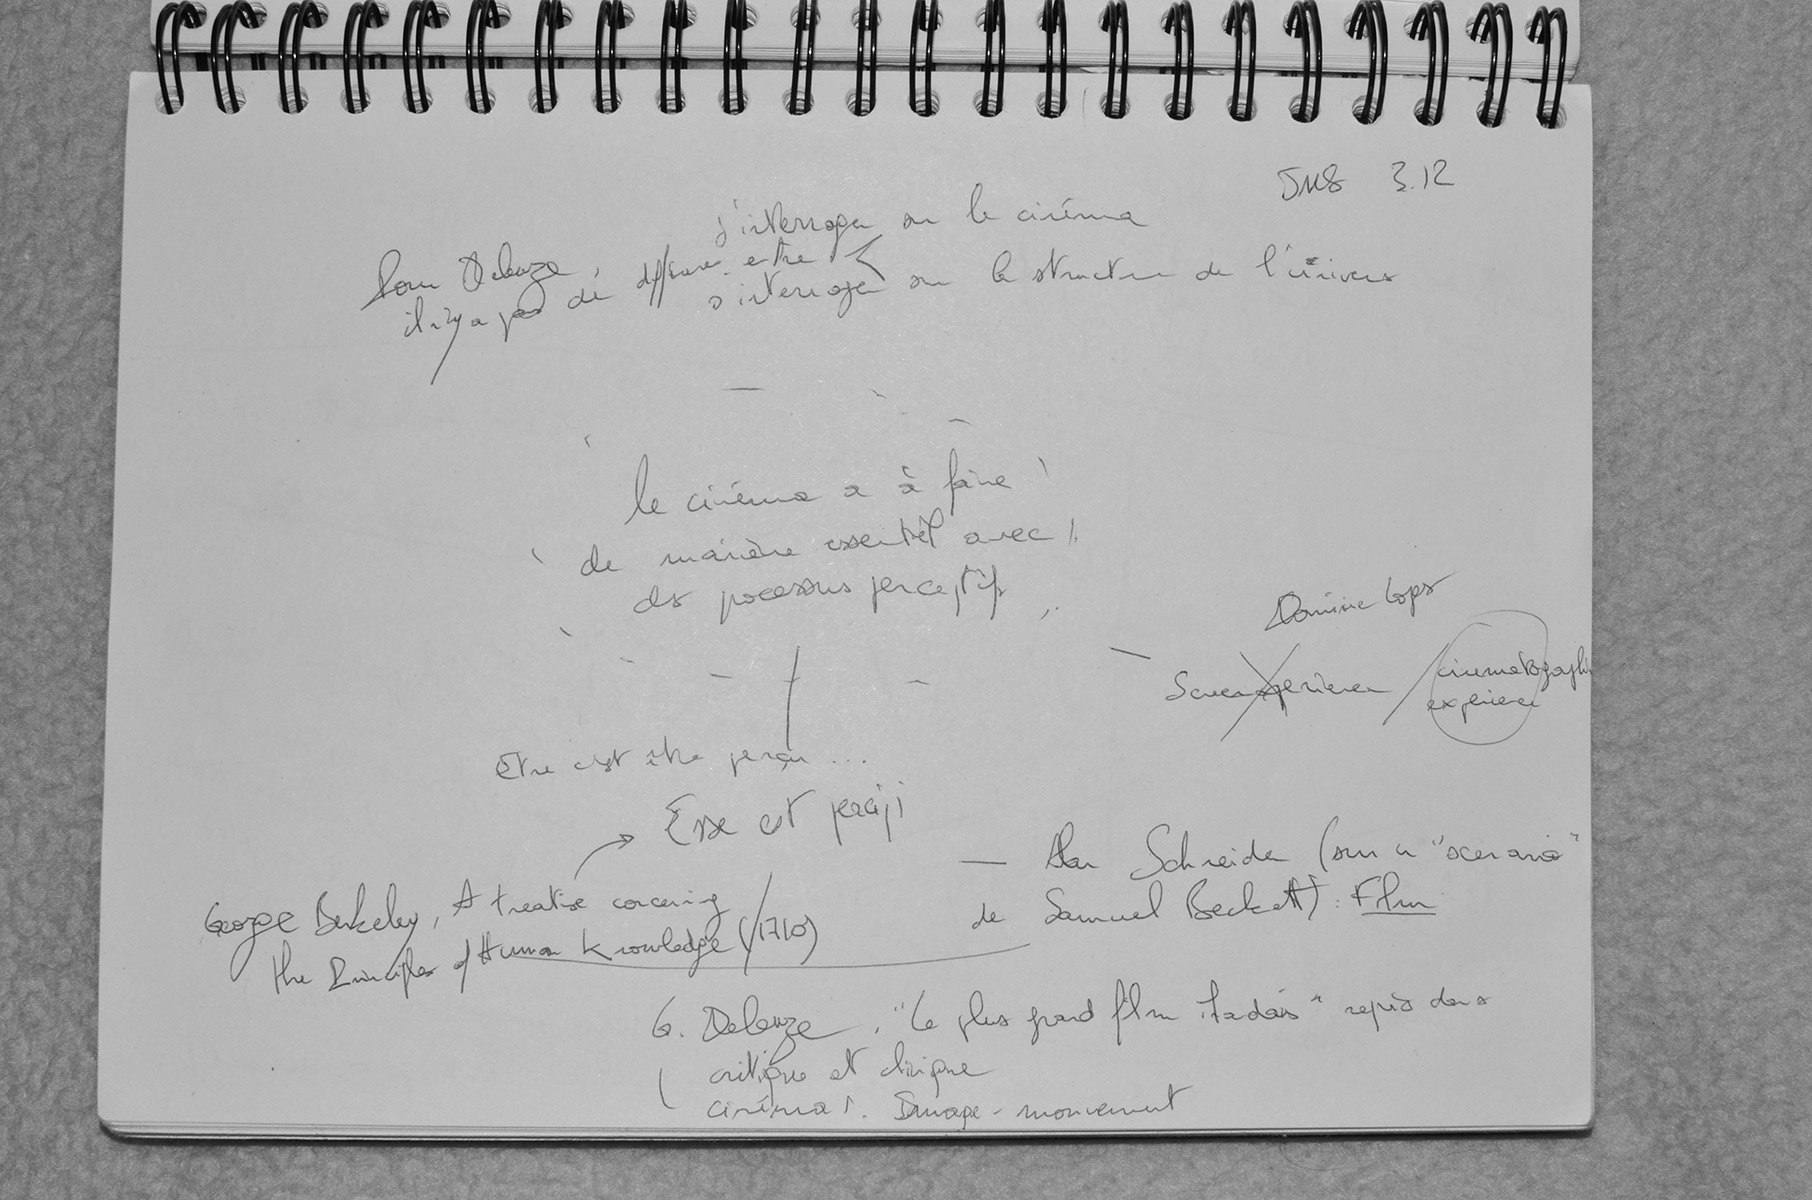 JMS 3.12
s'interroger sur le cinéma
Pour Deleuze, il n'y a pas de différence entre
s'interroger sur la structure de l'univers
le cinéma a à faire
de manière essentiel avec
des processus perceptifs
Dominic Lopes
Screen experience / cinematographic
experience
Etre c'est être perçu ...
Esse est percipi
George Berkeley, A treatise concerning
the Principles of Human Knowledge (1710)
— Alan Schneider (sur un "scenario"
de Samuel Beckett) : Film
G. Deleuze, "Le plus grand film irlandais" repris dans
critique et clinique
cinéma 1. Image-mouvement